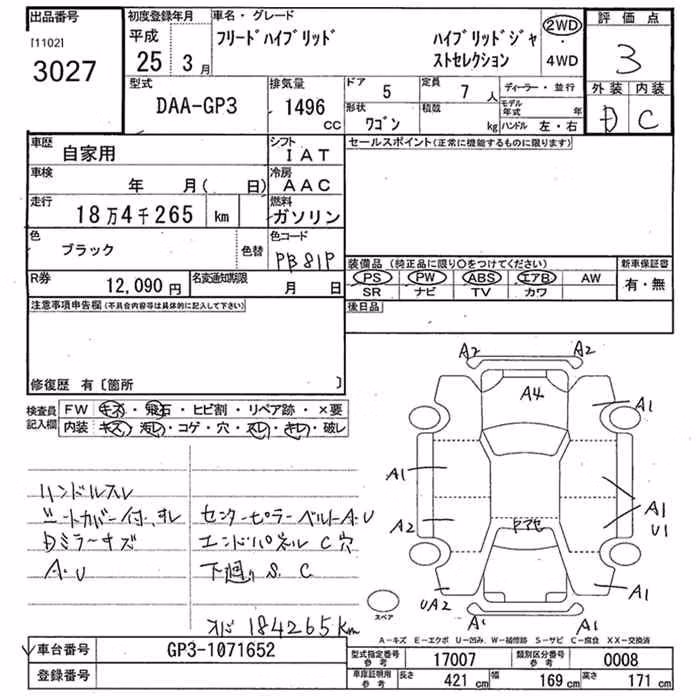 出品番号
[1102]
3027
初度登録年月
平成
25 3月
車名・グレード
フリードハイブリッド
ハイブリッドジャ
ストセレクション
2WD
・
4WD
評価点
3
外装 内装
D C
型式
DAA-GP3
排気量
1496
CC
ドア
5
定員
7人
形状
ワゴン
積載
kg
ディーラー・並行
モデル年式 年
ハンドル 左・右
車歴
自家用
シフト
IAT
車検
年 月( 日)
冷房
AAC
走行
18万4千265 km
燃料
ガソリン
色
ブラック
色替
色コード
PB81P
R券
12,090円
名変通知期限
月 日
セールスポイント(正常に機能するものに限ります)
装備品(純正品に限り〇をつけてください)
PS PW ABS エアB AW
SR ナビ TV カワ
新車保証書
有・無
後日品
注意事項申告欄(不具合内容等は具体的に記入して下さい)
修復歴 有〔箇所 〕
検査員
記入欄
FW キズ・飛石・ヒビ割・リペア跡・×要
内装 キズ・汚レ・コゲ・穴・スレ・キレ・破レ
ハンドルスレ
シートカバー付、スレ
Dミラーキズ
A・U
センターピラーベルトA・U
エンドパネルC穴
下廻りS、C
メーター184265km
A2 A2
A4
A1
A1
A2
A1
U1
ドアセ
UA2
A1
A1
A1
スペア
A－キズ E－エクボ U－凹み、W－補修跡 S－サビ C－腐食 XX－交換済
車台番号
GP3-1071652
登録番号
型式指定番号
参考
17007
類別区分番号
参考
0008
車庫証明用
参考
長さ 421 cm 幅 169 cm 高さ 171 cm